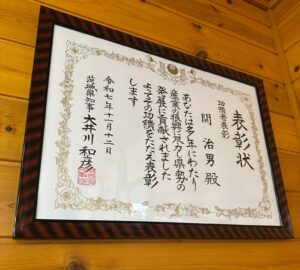 表彰状
功績者表彰
関 治男 殿
あなたは多年にわたり
産業の振興に尽力し県勢の
発展に貢献されました
よってその功績をたたえ表彰
します
令和七年十一月十三日
茨城県知事 大井川 和彦